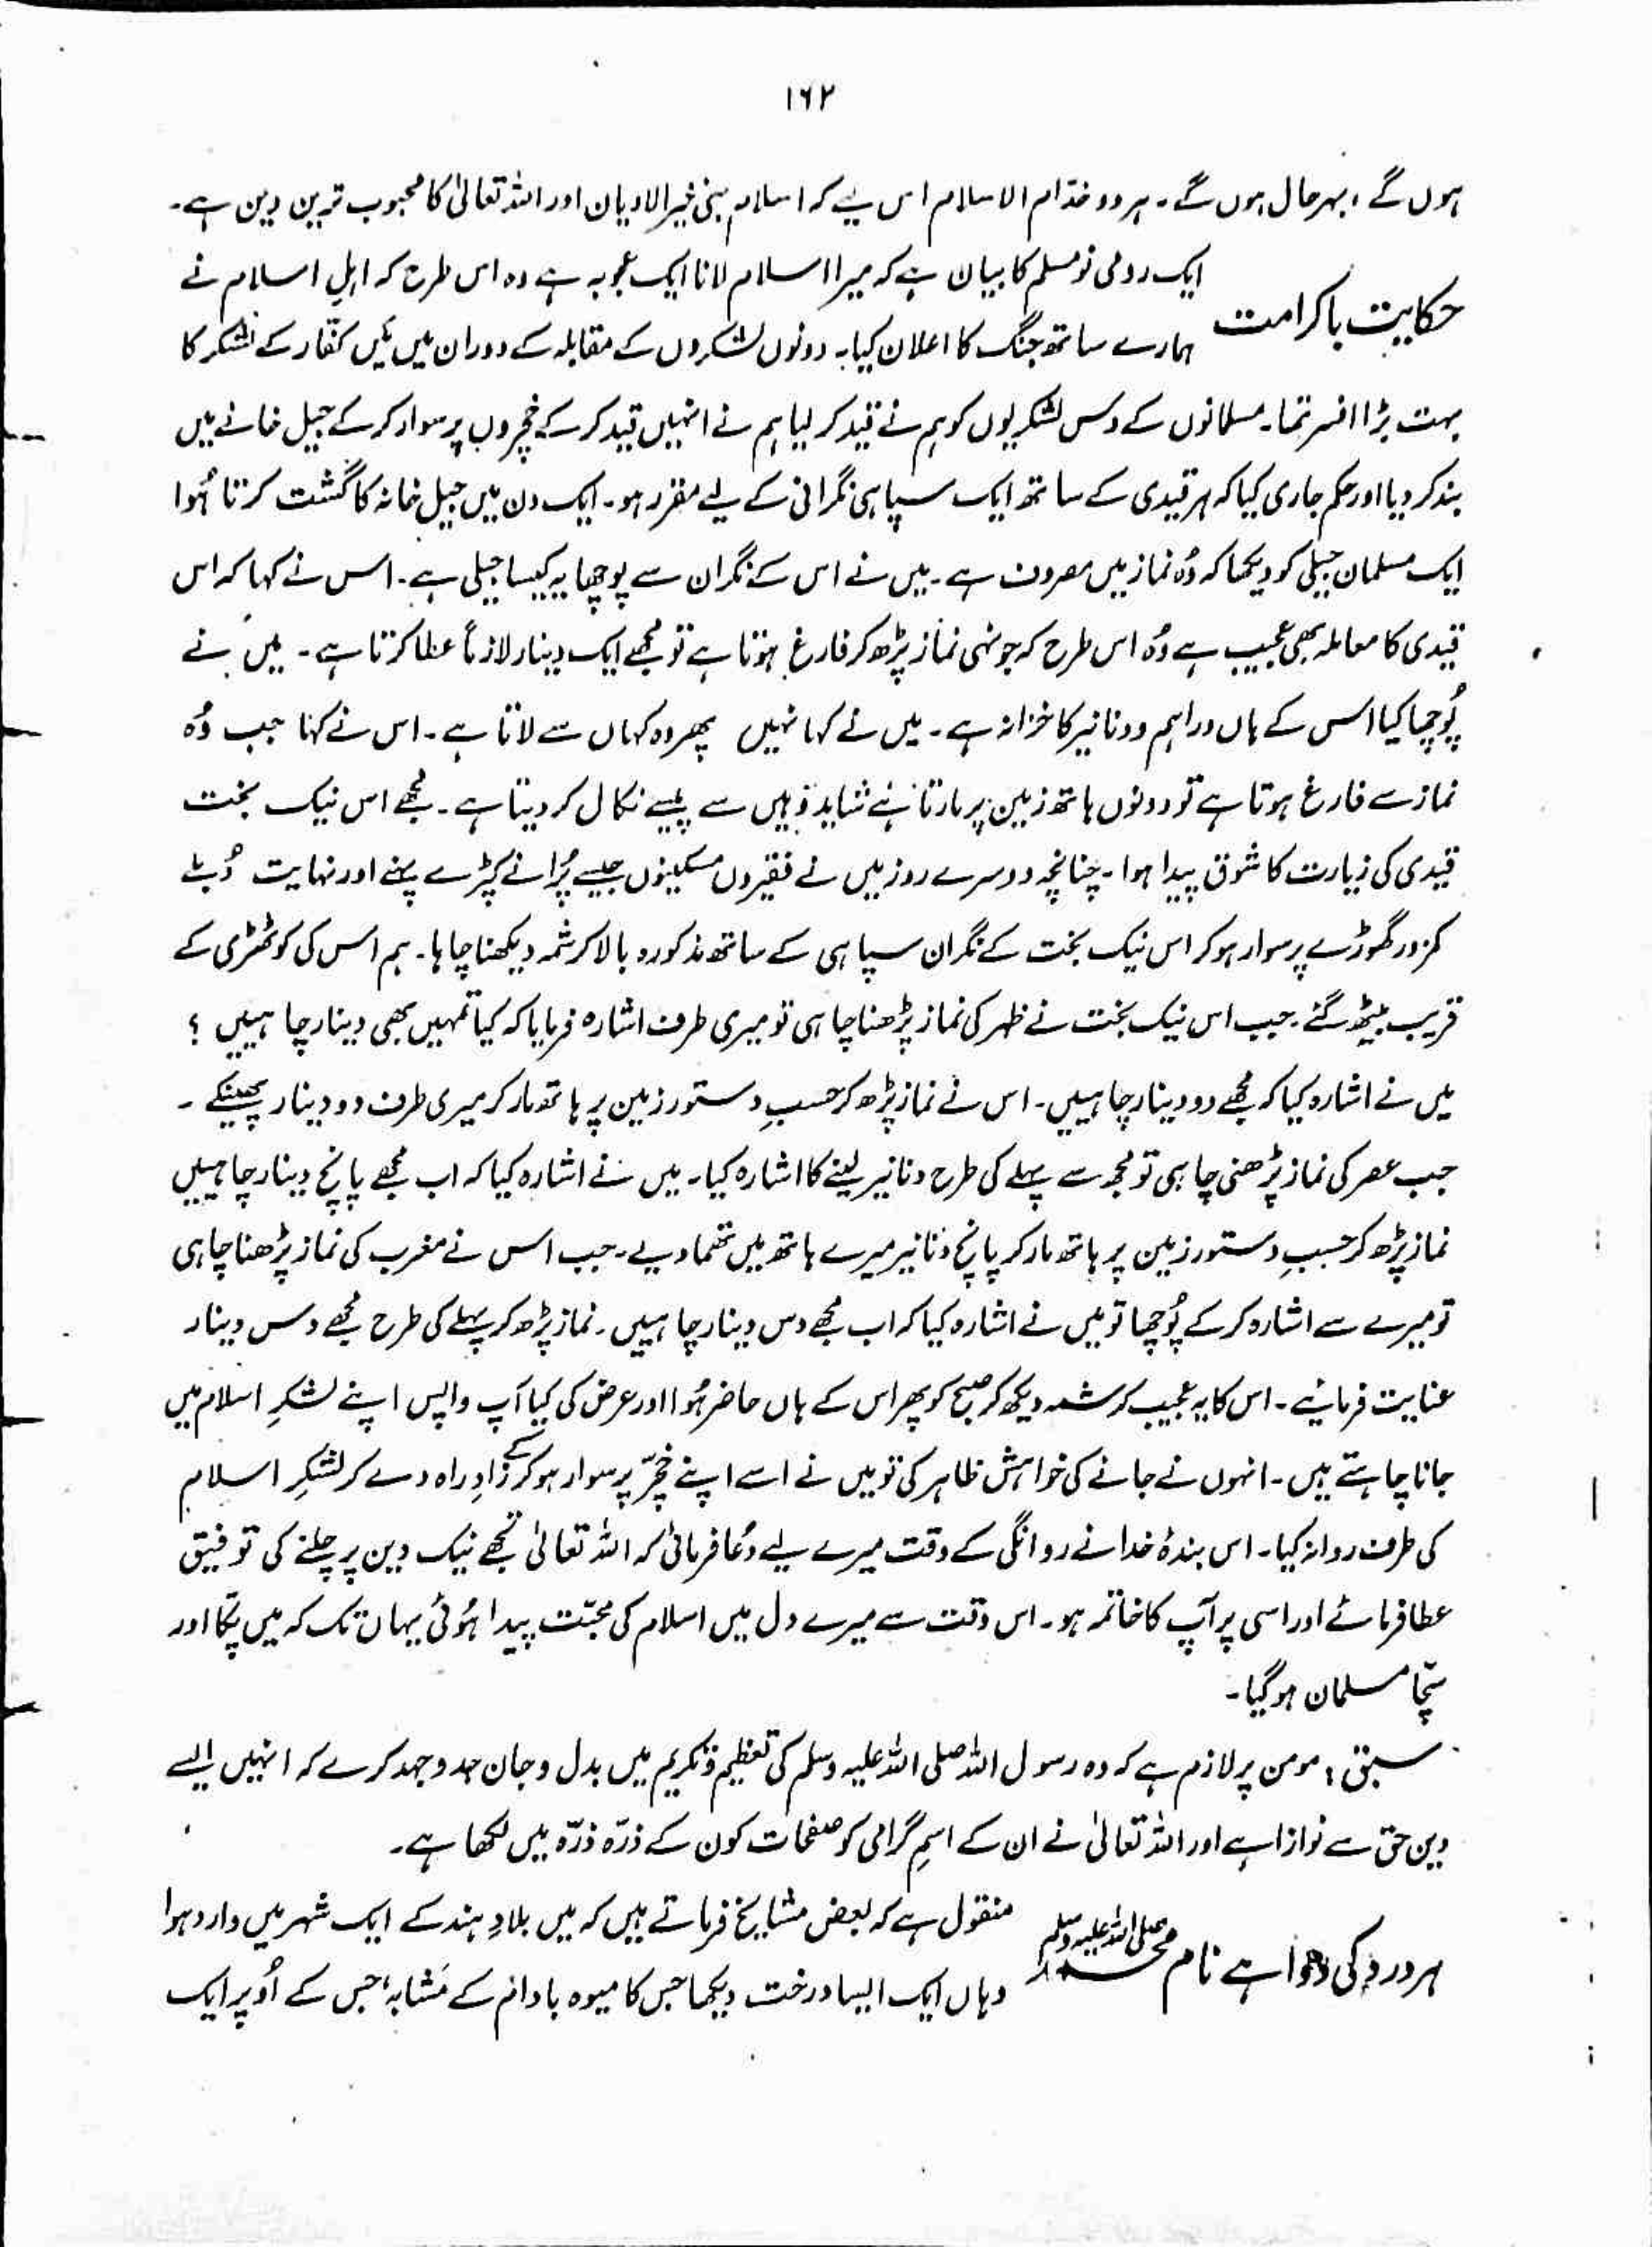 ۱۶۲
ہوں گے ، بہرحال ہوں گے ۔ ہر دو خدّام الاسلام اس لیے کہ اسلام ہی خیر الادیان اور اللہ تعالیٰ کا محبوب ترین دین ہے ۔
حکایت باکرامت
ایک رومی نو مسلم کا بیان ہے کہ میرا اسلام لانا ایک عجوبہ ہے وہ اس طرح کہ اہلِ اسلام نے
ہمارے ساتھ جنگ کا اعلان کیا ۔ دونوں لشکروں کے مقابلہ کے دوران میں مَیں کفّار کے لشکر کا
بہت بڑا افسر تھا ۔ مسلمانوں کے دس لشکریوں کو ہم نے قید کر لیا ہم نے انہیں قید کر کے خچروں پر سوار کر کے جیل خانے میں
بند کر دیا اور حکم جاری کیا کہ ہر قیدی کے ساتھ ایک سپاہی نگرانی کے لیے مقرر ہو ۔ ایک دن میں جیل خانہ کا گشت کرتا ہُوا
ایک مسلمان جیلی کو دیکھا کہ وُہ نماز میں مصروف ہے ۔ میں نے اس کے نگران سے پوچھا یہ کیسا جیلی ہے ۔ اس نے کہا کہ اس
قیدی کا معاملہ بھی عجیب ہے وُہ اس طرح کہ جونہی نماز پڑھ کر فارغ ہوتا ہے تو مجھے ایک دینار لازماً عطا کرتا ہے ۔ میں نے
پُوچھا کیا اس کے ہاں دراہم و دنانیر کا خزانہ ہے ۔ میں نے کہا نہیں پھر وہ کہاں سے لاتا ہے ۔ اس نے کہا جب وُہ
نماز سے فارغ ہوتا ہے تو دونوں ہاتھ زمین پر مارتا ہے شاید وہیں سے پیسے نکال کر دیتا ہے ۔ مجھے اس نیک بخت
قیدی کی زیارت کا شوق پیدا ہوا ۔ چنانچہ دوسرے روز میں نے فقیروں مسکینوں جیسے پُرانے کپڑے پہنے اور نہایت دُبلے
کمزور گھوڑے پر سوار ہو کر اس نیک بخت کے نگران سپاہی کے ساتھ مذکورہ بالا کرشمہ دیکھنا چاہا ۔ ہم اس کی کوٹھڑی کے
قریب بیٹھ گئے ۔ جب اس نیک بخت نے ظہر کی نماز پڑھنا چاہی تو میری طرف اشارہ فرمایا کہ کیا تمہیں بھی دینار چاہییں ؟
میں نے اشارہ کیا کہ مجھے دو دینار چاہییں ۔ اس نے نماز پڑھ کر حسبِ دستور زمین پر ہاتھ مار کر میری طرف دو دینار پھینکے ۔
جب عصر کی نماز پڑھنی چاہی تو مجھ سے پہلے کی طرح دنانیر لینے کا اشارہ کیا ۔ میں نے اشارہ کیا کہ اب مجھے پانچ دینار چاہییں
نماز پڑھ کر حسبِ دستور زمین پر ہاتھ مار کر پانچ دنانیر میرے ہاتھ میں تھما دیے ۔ جب اس نے مغرب کی نماز پڑھنا چاہی
تو میرے سے اشارہ کر کے پُوچھا تو میں نے اشارہ کیا کہ اب مجھے دس دینار چاہییں ۔ نماز پڑھ کر پہلے کی طرح مجھے دس دینار
عنایت فرمائے ۔ اس کا یہ عجیب کرشمہ دیکھ کر صبح کو پھر اس کے ہاں حاضر ہُوا اور عرض کی کیا آپ واپس اپنے لشکرِ اسلام میں
جانا چاہتے ہیں ۔ انہوں نے جانے کی خواہش ظاہر کی تو میں نے اسے اپنے خچّر پر سوار ہو کر کے زادِ راہ دے کر لشکرِ اسلام
کی طرف روانہ کیا ۔ اس بندۂ خدا نے روانگی کے وقت میرے لیے دُعا فرمائی کہ اللہ تعالیٰ تجھے نیک دین پر چلنے کی توفیق
عطا فرمائے اور اسی پر آپ کا خاتمہ ہو ۔ اس وقت سے میرے دل میں اسلام کی محبّت پیدا ہُوئی یہاں تک کہ میں پکّا اور
سچّا مسلمان ہو گیا ۔
سبق ؛ مومن پر لازم ہے کہ وہ رسول اللہ صلی اللہ علیہ وسلم کی تعظیم و تکریم میں بدل و جان جدوجہد کرے کہ انہیں ایسے
دین حق سے نوازا ہے اور اللہ تعالیٰ نے ان کے اسمِ گرامی کو صفحات کون کے ذرّہ ذرّہ میں لکھا ہے ۔
ہر درد کی دوا ہے نام محمد صلی اللہ علیہ وسلم
منقول ہے کہ بعض مشایخ فرماتے ہیں کہ میں بلادِ ہند کے ایک شہر میں وارد ہوا
وہاں ایک ایسا درخت دیکھا جس کا میوہ بادام کے مُشابہ ، جس کے اُوپر ایک